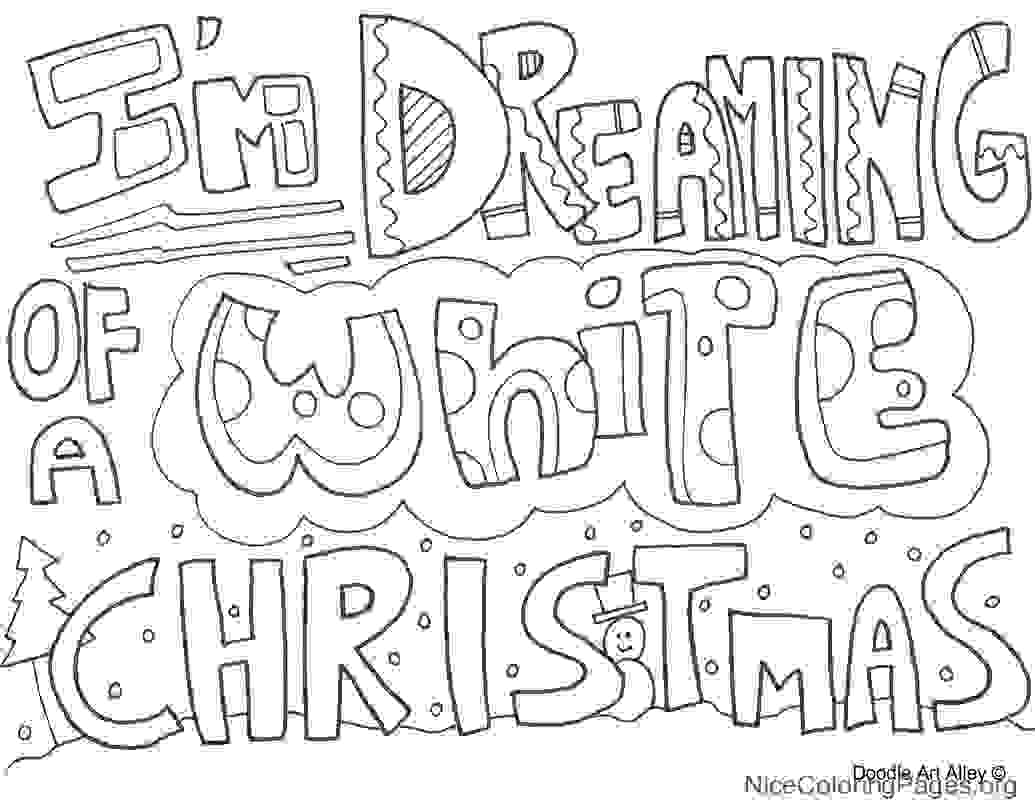 I'M DREAMING
OF A WhiTE
CHRISTMAS
Doodle Art Alley ©
NiceColoringPages.org